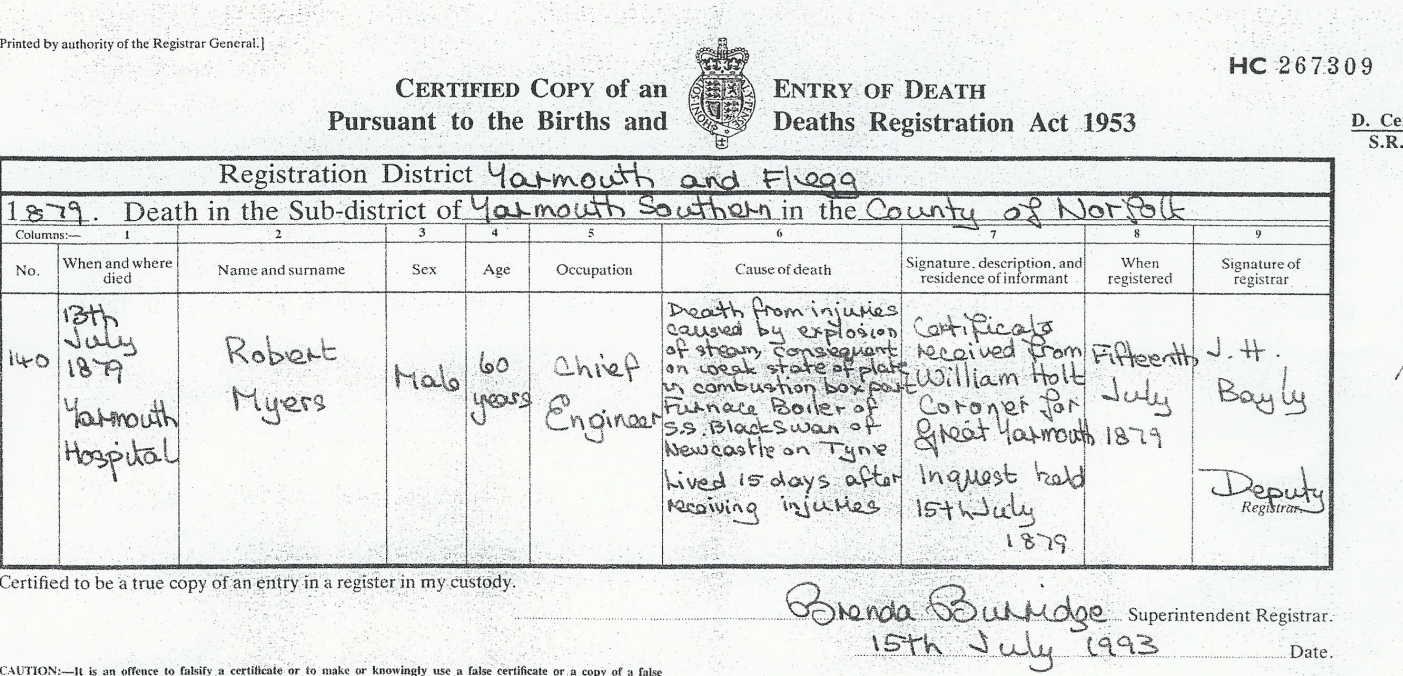 Printed by authority of the Registrar General.]
HC 267309
CERTIFIED COPY of an ENTRY OF DEATH
Pursuant to the Births and Deaths Registration Act 1953
D. Ce
S.R.
Registration District Yarmouth and Flegg
1879. Death in the Sub-district of Yarmouth Southern in the County of Norfolk
Columns:— 1 2 3 4 5 6 7 8 9
No.
When and where
died
Name and surname
Sex
Age
Occupation
Cause of death
Signature, description, and
residence of informant
When
registered
Signature of
registrar
140
13th
July
1879
Yarmouth
Hospital
Robert
Myers
Male
60
years
Chief
Engineer
Death from injuries
caused by explosion
of steam, consequent
on weak state of plate
in combustion box part
Furnace Boiler of
S.S. Black Swan of
Newcastle on Tyne
Lived 15 days after
receiving injuries
Certificate
received from
William Holt
Coroner for
Great Yarmouth
Inquest held
15th July
1879
Fifteenth
July
1879
J. H.
Bayly
Deputy
Registrar
Certified to be a true copy of an entry in a register in my custody.
Brenda Burridge Superintendent Registrar.
15th July 1993 Date.
CAUTION:—It is an offence to falsify a certificate or to make or knowingly use a false certificate or a copy of a false